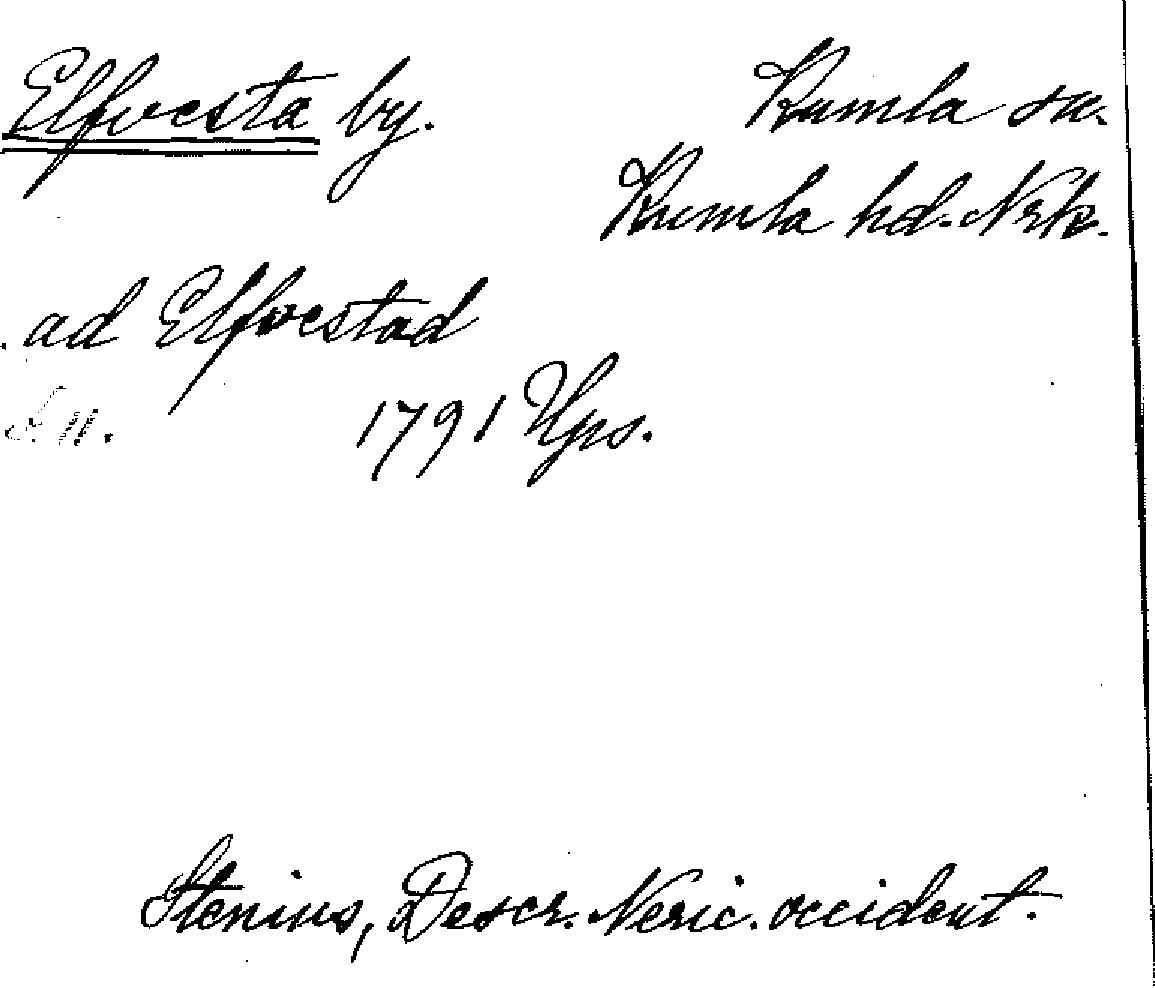 Elfvesta by. Kumla sn.
Kumla hd. Nrk.
ad Elfvestad
S. 11. 1791 Ups.
Stenius, Descr. Neric. occident.